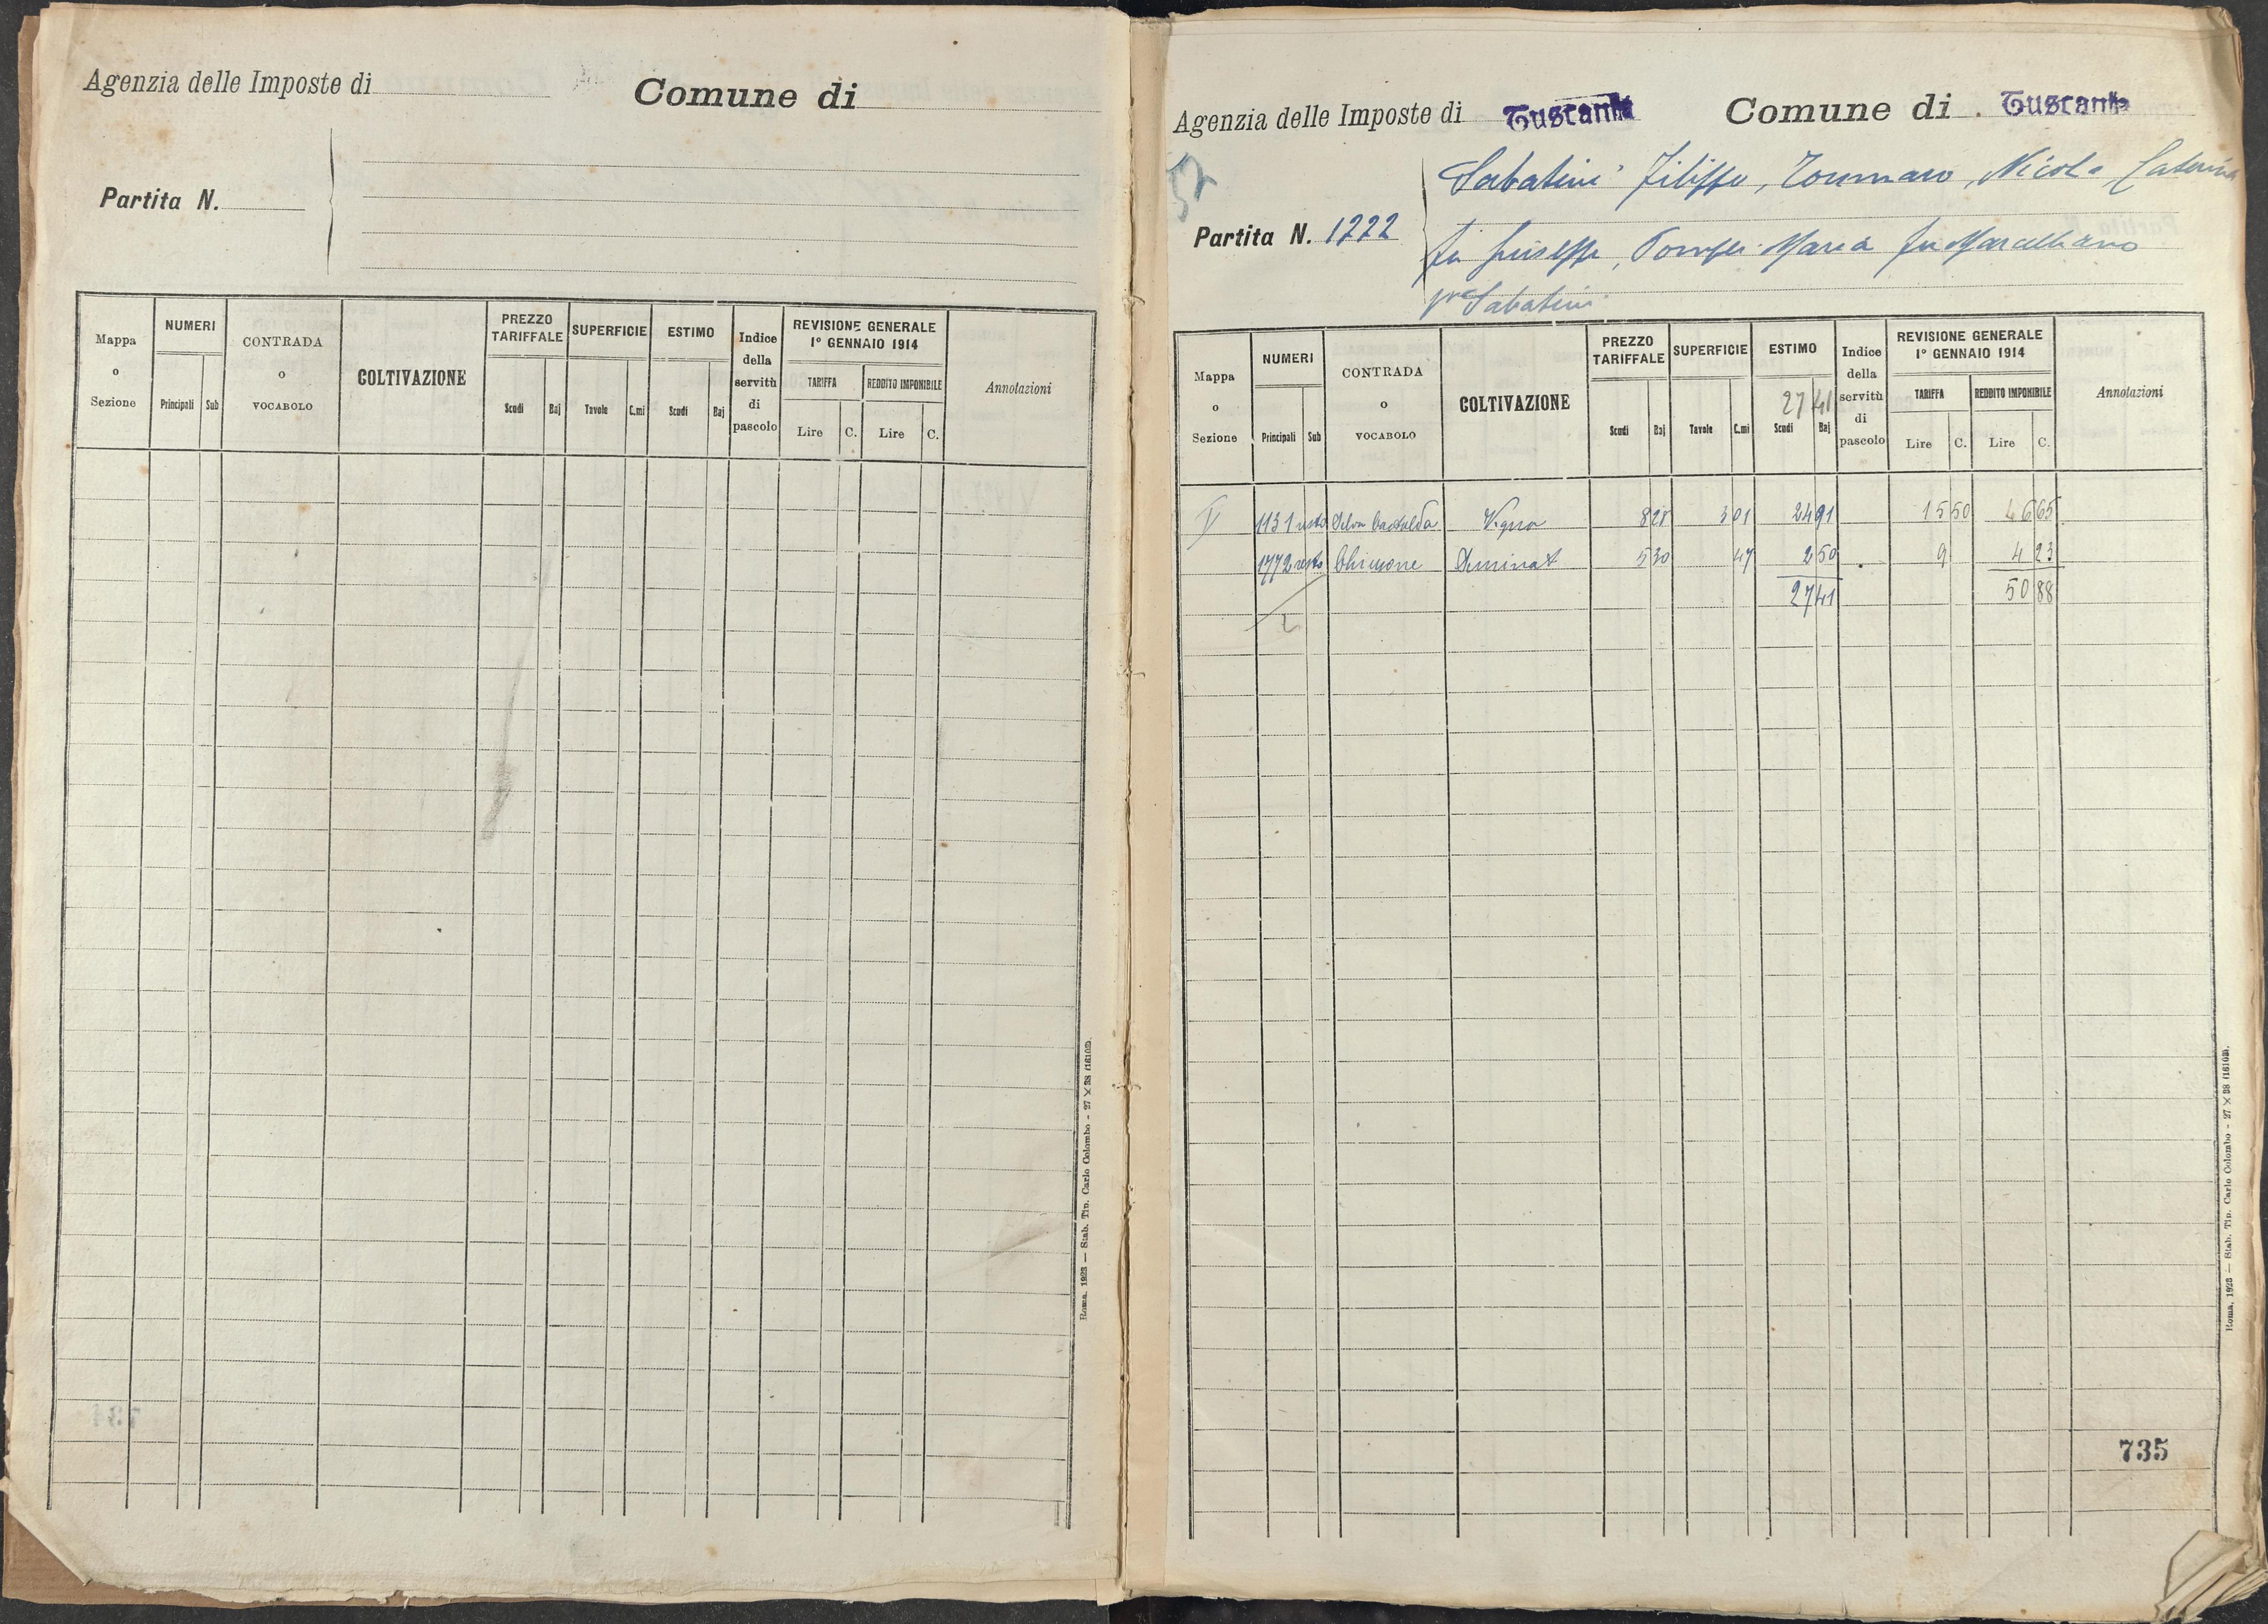 Agenzia delle Imposte di
Comune di
Partita N.
Mappa o Sezione
NUMERI
Principali Sub
CONTRADA o VOCABOLO
COLTIVAZIONE
PREZZO TARIFFALE
Scudi Baj
SUPERFICIE
Tavole C.mi
ESTIMO
Scudi Baj
Indice della servitù di pascolo
REVISIONE GENERALE
1° GENNAIO 1914
TARIFFA
Lire C.
REDDITO IMPONIBILE
Lire C.
Annotazioni
Roma, 1923 — Stab. Tip. Carlo Colombo - 27 × 38 (1610).
Agenzia delle Imposte di Tuscania
Comune di Tuscania
Partita N. 1222
Sabatini Filippo, Tommaso, Nicola Caterina
fu Giuseppe, Pompei Maria fu Marcelliano
Sabatini
Mappa o Sezione
NUMERI
Principali Sub
CONTRADA o VOCABOLO
COLTIVAZIONE
PREZZO TARIFFALE
Scudi Baj
SUPERFICIE
Tavole C.mi
ESTIMO
27 41
Scudi Baj
Indice della servitù di pascolo
REVISIONE GENERALE
1° GENNAIO 1914
TARIFFA
Lire C.
REDDITO IMPONIBILE
Lire C.
Annotazioni
V 1131 resto Vigna 3 01 24 91 15 50 46 65
1772 resto Seminat 5 30 47 2 50 9 4 23
27 41 50 88
2
735
Roma, 1923 — Stab. Tip. Carlo Colombo - 27 × 38 (1610).